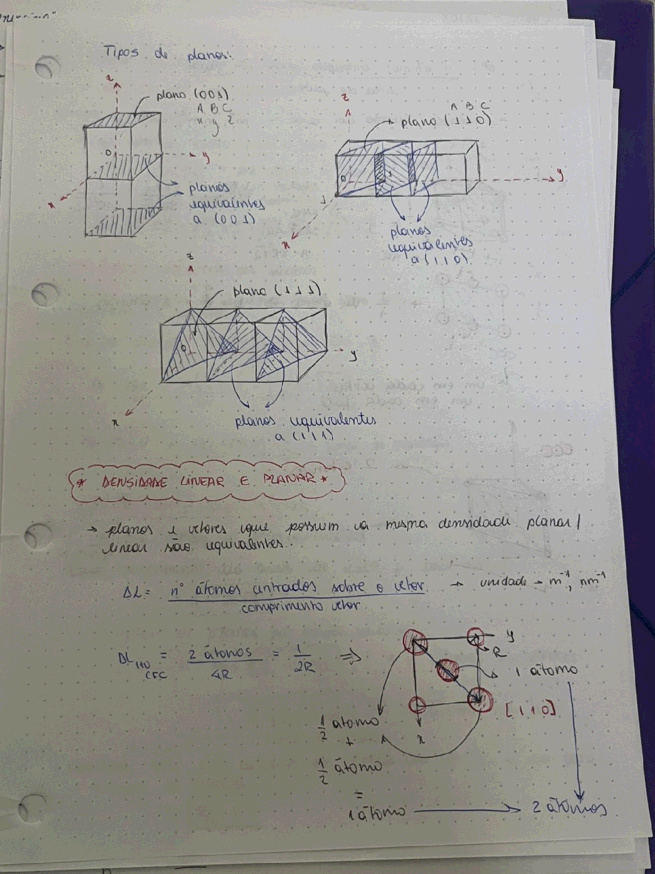 Tipos de planos:
z
plano (001)
A B C
x y z
0
y
x
planos
equivalentes
a (001)
z
A B C
plano (110)
0
1
y
x
planos
equivalentes
a (110)
z
plano (111)
0
y
x
planos equivalentes
a (111)
* DENSIDADE LINEAR E PLANAR *
→ planos e vetores que possuem a mesma densidade planar/
linear são equivalentes.
ΔL = nº átomos centrados sobre o vetor → unidade → m⁻¹, nm⁻¹
comprimento vetor
DL₁₁₀ CFC = 2 átomos / 4R = 1 / 2R ⇒
y
R
1 átomo
[110]
x
1/2 átomo
+
1/2 átomo
=
1 átomo → 2 átomos